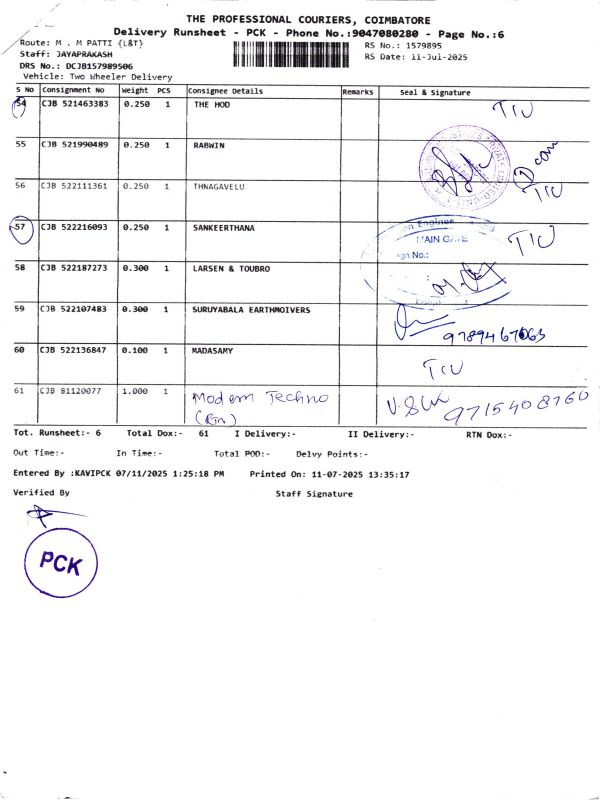 THE PROFESSIONAL COURIERS, COIMBATORE
Delivery Runsheet - PCK - Phone No.:9047080280 - Page No.:6
Route: M . M PATTI {L&T}
RS No.: 1579895
Staff: JAYAPRAKASH
RS Date: 11-Jul-2025
DRS No.: DCJB157989506
Vehicle: Two Wheeler Delivery
S No Consignment No Weight PCS Consignee Details Remarks Seal & Signature
54 CJB 521463383 0.250 1 THE HOD TIU
55 CJB 521990489 0.250 1 RABWIN
56 CJB 522111361 0.250 1 THNAGAVELU TIU
57 CJB 522216093 0.250 1 SANKEERTHANA TIU
MAIN GATE
58 CJB 522187273 0.300 1 LARSEN & TOUBRO
59 CJB 522107483 0.300 1 SURUYABALA EARTHMOIVERS 9789467063
60 CJB 522136847 0.100 1 MADASAMY TIU
61 CJB 81120077 1.000 1 Modern Techno 9715408760
Tot. Runsheet:- 6 Total Dox:- 61 I Delivery:- II Delivery:- RTN Dox:-
Out Time:- In Time:- Total POD:- Delvy Points:-
Entered By :KAVIPCK 07/11/2025 1:25:18 PM Printed On: 11-07-2025 13:35:17
Verified By Staff Signature
PCK